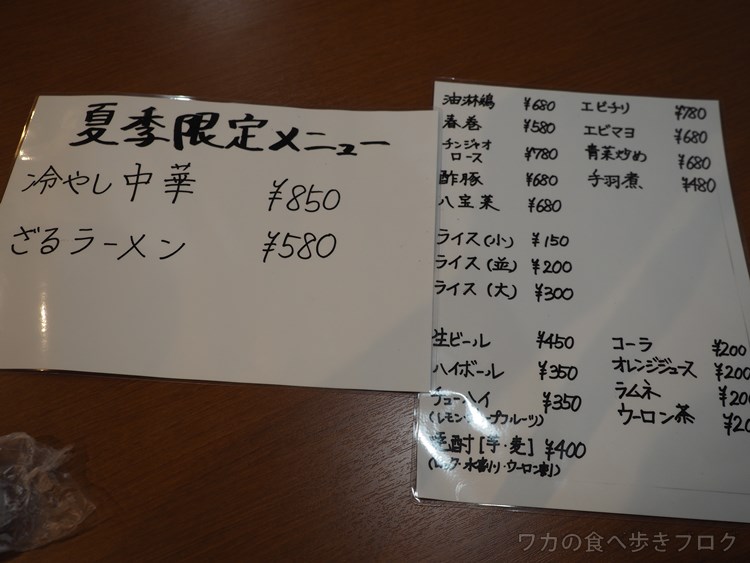 夏季限定メニュー
冷やし中華 ¥850
ざるラーメン ¥580
油淋鶏 ¥680
春巻 ¥580
チンジャオ
ロース ¥780
酢豚 ¥680
八宝菜 ¥680
エビチリ ¥780
エビマヨ ¥680
青菜炒め ¥680
手羽煮 ¥480
ライス(小) ¥150
ライス(並) ¥200
ライス(大) ¥300
生ビール ¥450
ハイボール ¥350
チューハイ ¥350
(レモン・グレープフルーツ)
焼酎[芋・麦] ¥400
(ロック・水割り・ウーロン割)
コーラ ¥200
オレンジジュース ¥200
ラムネ ¥200
ウーロン茶
ワカの食べ歩きブログ